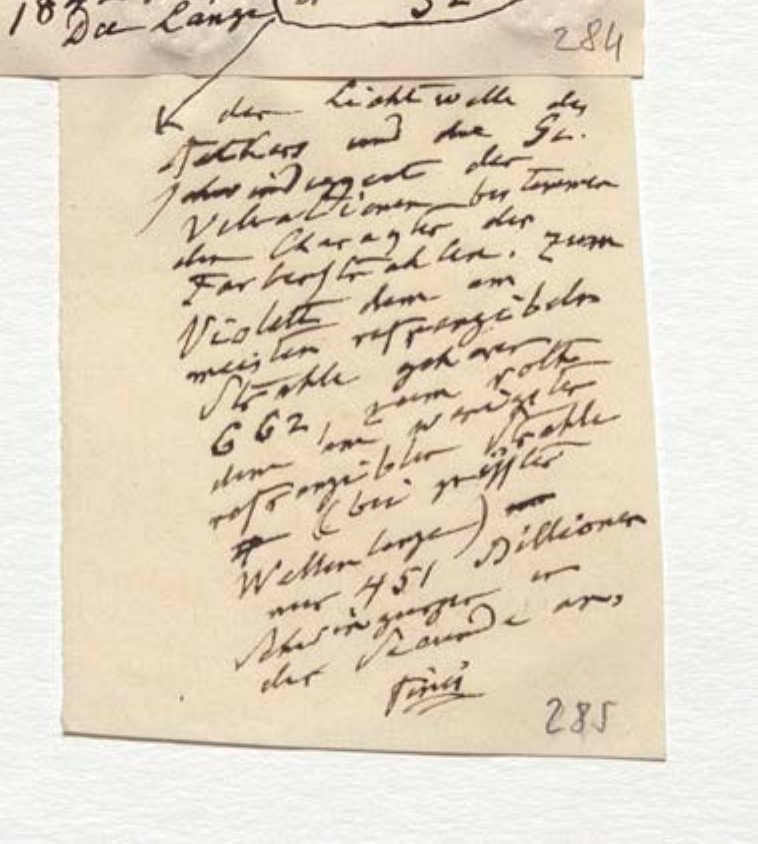 Die Länge
284
der Lichtwelle des
Aethers und die Ge-
schwindigkeit der
Vibrationen bestimmen
den Charakter der
Farbenstrahlen. Zum
Violett dem am
meisten refrangibeln
Strahle gehören
662, zum roth
dem am wenigster
refrangiblen Strahle
(bei größter
Wellenlänge)
nur 451 Billionen
Schwingungen in
der Secunde an,
Finis
285